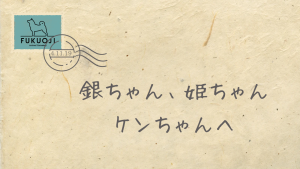 FUKUOJI
銀ちゃん、姫ちゃん
ケンちゃんへ